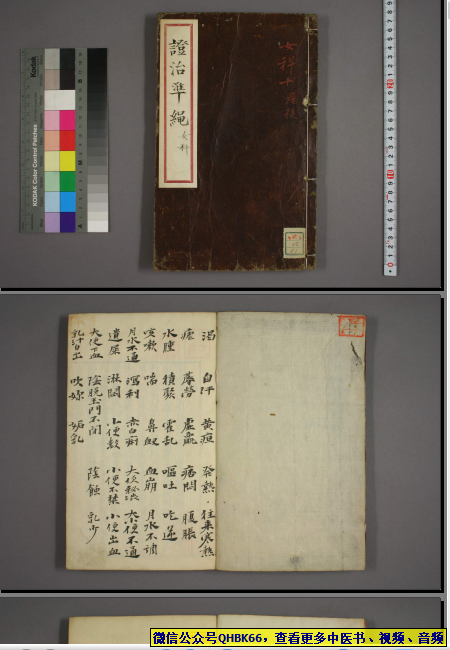 Kodak
KODAK Color Control Patches
證治準繩
女科
女科
渴 自汗 黄疸 發熱 往来寒熱
瘧 蓐勞 虚羸 痞悶 腹脹
水腫 積聚 霍乱 嘔吐 吃逆
咳嗽 喘 鼻衂 血崩 月水不調
月水不通 瀉利 赤白痢 大便秘澁 大小便不通
遺屎 淋閟 小便数 小便不禁 小便出血
大便下血 陰脱玉門不閉 陰蝕 乳少
乳汁自出 吹嬭 妬乳
微信公众号QHBK66，查看更多中医书、视频、音频